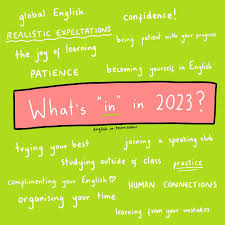 global English
confidence!
REALISTIC EXPECTATIONS
being patient with your progress
the joy of learning
PATIENCE
becoming yourself in English
What's "in" in 2023?
english in team colour
trying your best
joining a speaking club
studying outside of class
practice
complimenting your English
HUMAN CONNECTIONS
organising your time
learning from your mistakes